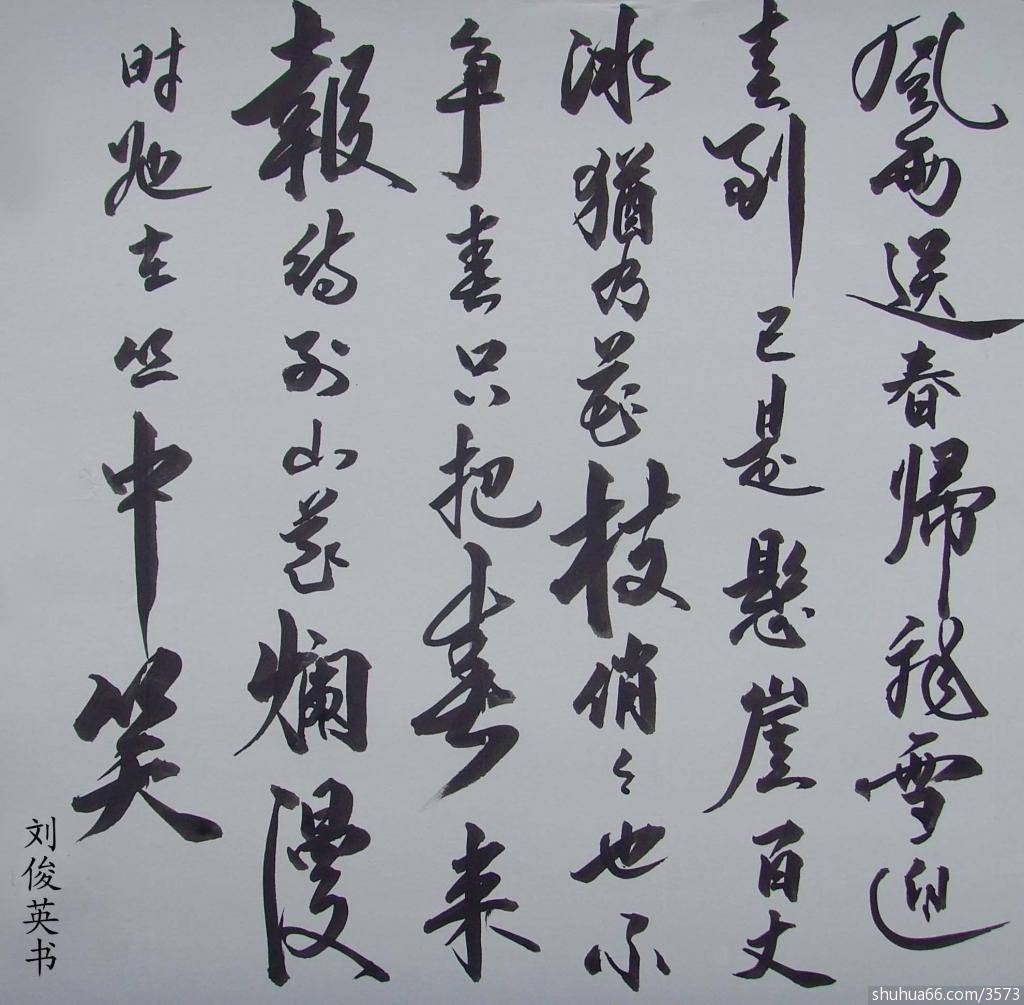 風雨送春帰飛雪迎
春到已是懸崖百丈
冰猶有花枝俏々也不
争春只把春来
報待到山花爛漫
时她在丛中笑
刘俊英书
shuhua66.com/3573